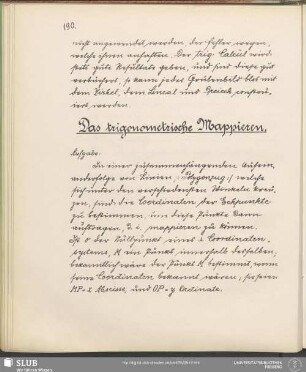 190.
nicht angewendet werden der Fehler wegen,
welche ihnen anhaften. Der trig. Calcül wird
stets gute Resultate geben, und sind diese gut
verbucht, so kann jedes Grubenbild blos mit
dem Zirkel, dem Lineal und Dreieck construi-
irt werden.
Das trigonometrische Mappieren.
Aufgabe:
In einer zusammenhängenden Aufein-
anderfolge von Linien, Polygonzug, welche
sich unter den verschiedensten Winkeln kreu-
zen, sind die Coordinaten der Eckpunkte
zu bestimmen, um diese Punkte dann
auftragen, d. i. mappieren zu können.
Ist O der Nullpunkt eines Coordinaten-
systems, M ein Punkt innerhalb desselben,
bekanntlich wäre der Punkt M bestimmt, wenn
seine Coordinaten bekannt wären,
MP = x Abscisse, und OP = y Ordinate.
SLUB
Wir führen Wissen.